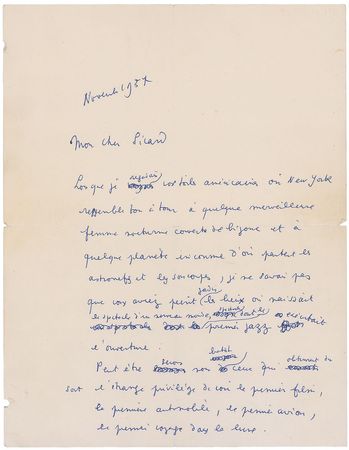 Novembre 1957
Mon cher Sicard
Lorsque je regardais vos toiles américaines où New York
ressemble tour à tour à quelque merveilleuse
femme nocturne couverte de bijoux et à
quelque planète inconnue d'où partent les
astronefs et les soucoupes, je ne savais pas
que vous aviez peint jadis les lieux où naissait
le spectacle d'un monde dont le premier jazz exécutait
l'ouverture.
Peut être serons nous ceux qui
soit l'étrange privilège de voir le premier film,
la première automobile, le premier avion,
le premier voyage dans la lune.